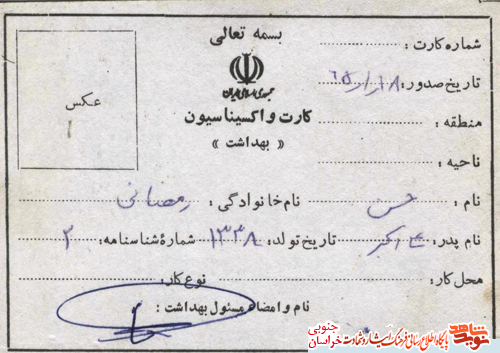 بسمه تعالی
شماره کارت :
جمهوری اسلامی ایران
تاریخ صدور: ۶۵/۱/۱۸
عکس
کارت واکسیناسیون
منطقه :
« بهداشت »
ناحیه :
نام : حسن نام خانوادگی : رمضانی
نام پدر: ع اکبر تاریخ تولد: ۱۳۳۸ شمارهٔ شناسنامه: ۲
محل کار: نوع کار:
نام و امضاء مسئول بهداشت :
نوید شاهد
پایگاه اطلاع رسانی فرهنگ ایثار و شهادت
خراسان جنوبی